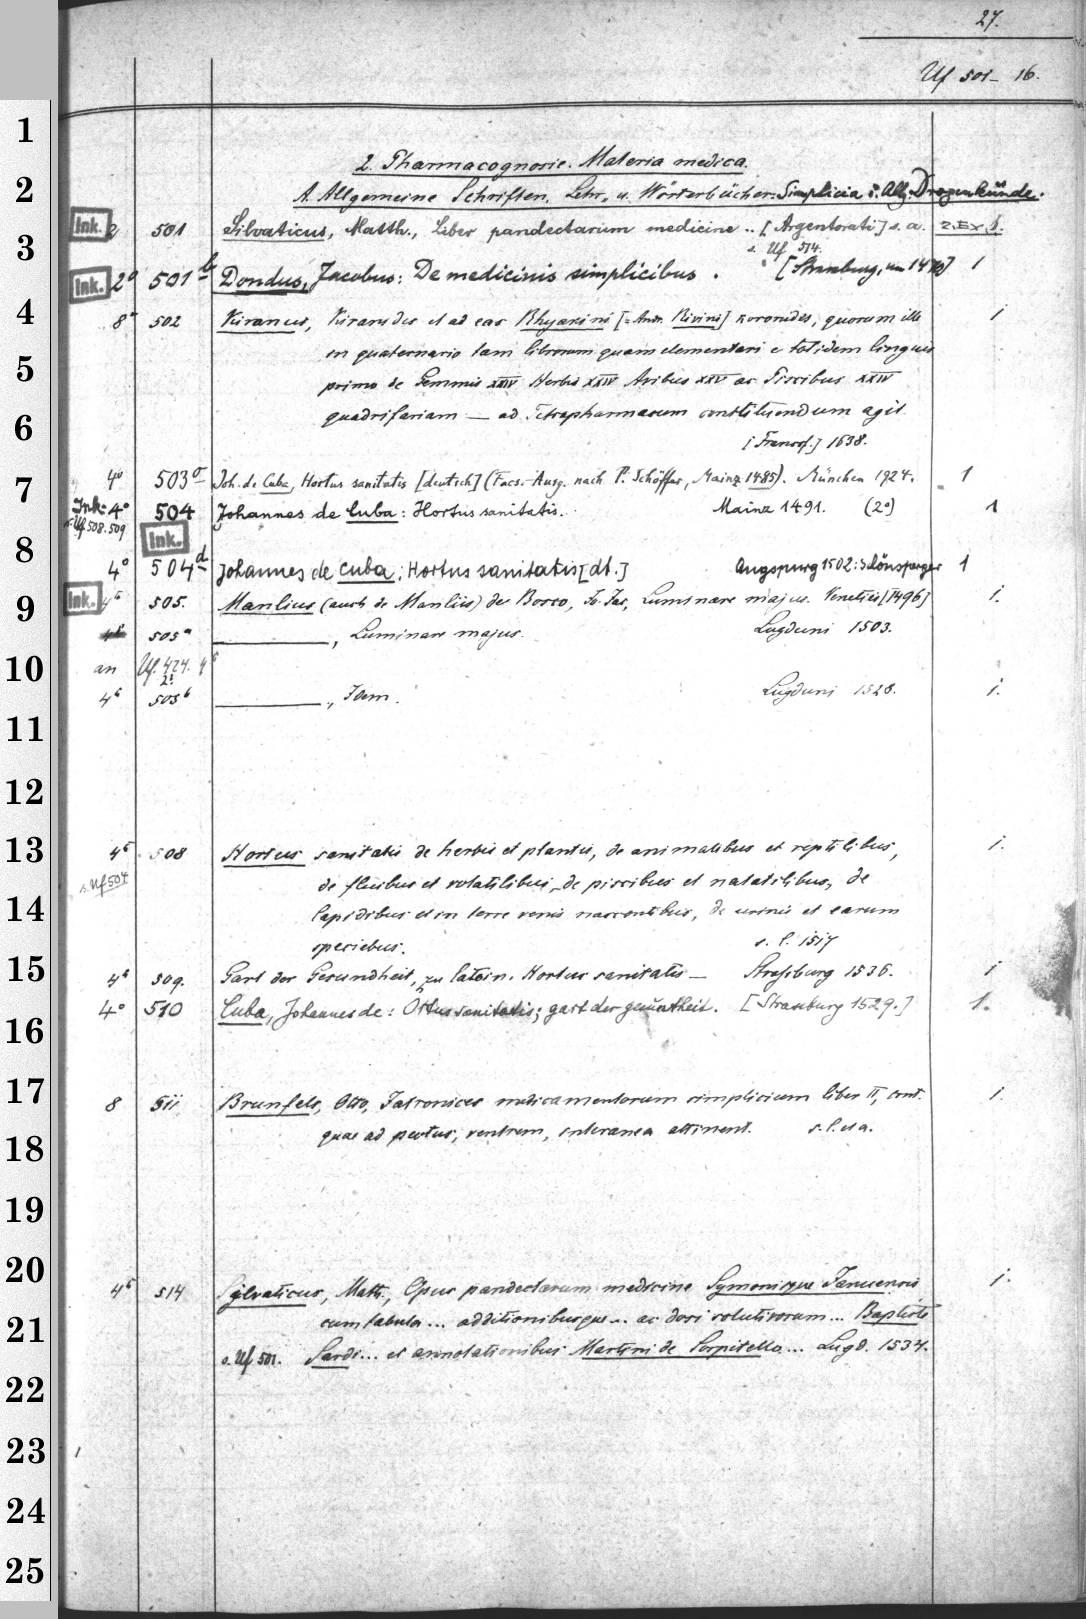 27.
Uf 501-16.
2. Pharmacognosie. Materia medica.
A. Allgemeine Schriften, Lehr- u. Wörterbücher. Simplicia u. Allg. Drogenkunde.
Ink. 2 501 Silvaticus, Matth., Liber pandectarum medicine .. [Argentorati] s. a. 2. Ex. 1.
s. Uf 514.
Ink. 2° 501 b Dondus, Jacobus: De medicinis simplicibus. [Strassburg, um 1470] 1
8° 502 Kiranus, Kiranides et ad eas Rhyakini [= Andr. Rivini] koronides, quorum ille 1
in quaternario tam librorum quam elementari e totidem linguis
primo de Gemmis XXIV Herbis XXIV Avibus XXV ac Piscibus XXIV
quadrifariam — ad Tetrapharmacum constituendum agit.
[Francof.] 1638.
4° 503 a Joh. de Cuba, Hortus sanitatis [deutsch] (Facs.-Ausg. nach P. Schöffer, Mainz 1485). München 1924. 1
Ink. 4° 504 Johannes de Cuba: Hortus sanitatis. Mainz 1491. (2°) 1
s. Uf 508. 509
Ink.
4° 504 d Johannes de Cuba: Hortus sanitatis [dt.] Augspurg 1502: Schönsperger 1
Ink. 4° 505. Manlius (auch de Manliis) de Bosco, Jo. Jac., Luminare majus. Venetiis [1496] 1.
4° 505 a ———, Luminare majus. Lugduni 1503.
an Uf. 424. 4°
2:
4° 505 b ———, Idem. Lugduni 1528. 1.
4° 508 Hortus sanitatis de herbis et plantis, de animalibus et reptilibus, 1.
s. Uf 504
de avibus et volatilibus, de piscibus et natatilibus, de
lapidibus et in terre venis nascentibus, de urinis et earum
speciebus. s. l. 1517
4° 509. Gart der Gesundheit, zu latein. Hortus sanitatis — Straßburg 1536. 1
4° 510 Cuba, Johannes de: Ortus sanitatis; gart der gesuntheit. [Strassburg 1529.] 1.
8 511 Brunfels, Otto, Iatronices medicamentorum simplicium liber II, cont. 1.
quae ad pectus, ventrem, interanea attinent. s. l. et a.
4° 514 Sylvaticus, Matth., Opus pandectarum medicine Symonisque Januensis 1.
cum tabula ... additionibusque ... ac dosi solutivorum ... Baptiste
s. Uf 501. Sardi ... et annotationibus Martini de Sospitello ... Lugd. 1534.
1
2
3
4
5
6
7
8
9
10
11
12
13
14
15
16
17
18
19
20
21
22
23
24
25